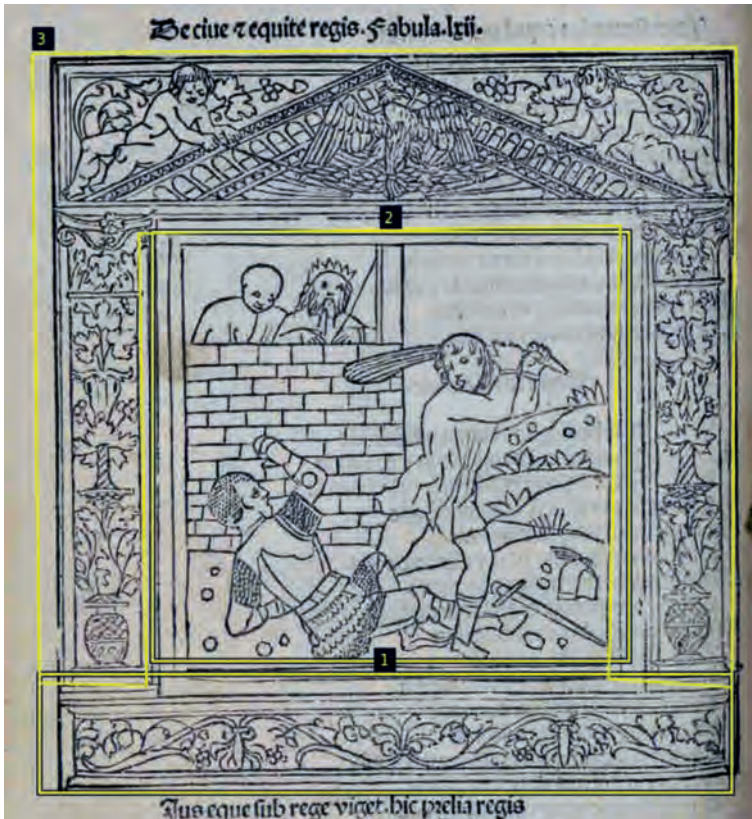 De ciue ⁊ equite regis. Fabula. lxii.
3
2
1
Ius eque sub rege viget. hic prelia regis